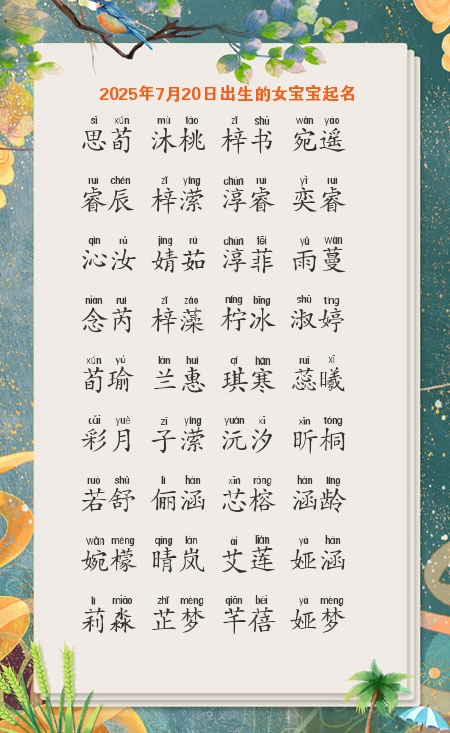 2025年7月20日出生的女宝宝起名
sī xún mù táo zǐ shū wǎn yáo
思荀 沐桃 梓书 宛遥
ruì chén zǐ yíng chún ruì yì ruì
睿辰 梓潆 淳睿 奕睿
qìn rǔ jìng rú chún fēi yǔ wàn
沁汝 婧茹 淳菲 雨蔓
niàn ruì zǐ zǎo níng bīng shū tíng
念芮 梓藻 柠冰 淑婷
xún yú lán huì qí hán ruǐ xī
荀瑜 兰惠 琪寒 蕊曦
cǎi yuè zǐ yíng yuán xī xīn tóng
彩月 子潆 沅汐 昕桐
ruò shū lì hán xīn róng hán líng
若舒 俪涵 芯榕 涵龄
wǎn méng qíng lán ài lián yà hán
婉檬 晴岚 艾莲 娅涵
lì miǎo zhǐ mèng qiān bèi yà mèng
莉淼 芷梦 芊蓓 娅梦